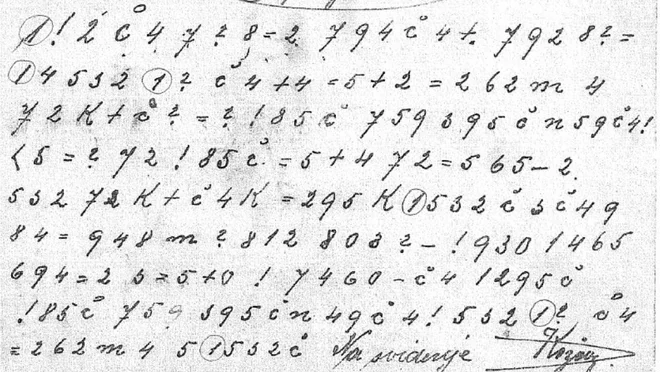 ①! 2 č 4 7 ? 8 = 2 7 9 4 č 4 + 7 9 2 8 ? =
① 4 5 3 2 ① ? č 4 + 4 = 5 + 2 = 2 6 2 m 4
7 2 K + č ? = ? ! 8 5 č 7 5 9 3 9 5 č n 5 9 č 4 !
( 5 = ? 7 2 ! 8 5 č = 5 + 4 7 2 = 5 6 5 – 2
5 3 2 7 2 K + č 4 K = 2 9 5 K ① 5 3 2 č 3 č 4 9
8 4 = 9 4 8 m ? 8 1 2 8 0 3 ? – ! 9 3 0 1 4 6 5
6 9 4 = 2 3 = 5 + 0 ! 7 4 6 0 – č 4 1 2 9 5 č
! 8 5 č 7 5 9 3 9 5 č n 4 9 č 4 ! 5 3 2 ① ? č 4
= 2 6 2 m 4 5 ① 5 3 2 č Na svidenje